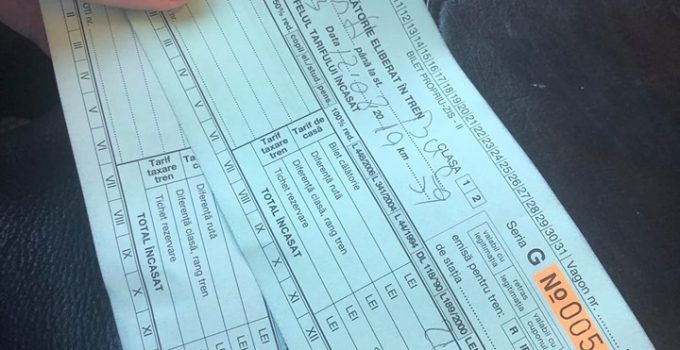 11 12 13 14 15 16 17 18 19 20 21 22 23 24 25 26 27 28 29 30 31 Vagon nr.
BILET PROPRIU-ZIS - II
Seria G No 005
ĂTORIE ELIBERAT ÎN TREN
CLASA 1 2
valabil cu legitimația
retras legitimația
valabil cu cuponul
până la st. B
emisă pentru tren: R
Data 2019 km 59
de stația
FELUL TARIFULUI ÎNCASAT
50% red. 100% red. L 448/2006 L 341/2004 L 44/1994 DL 118/90 L189/2000
Tarif de casă
Bilet călătorie
LEI
Diferență rută
LEI
Tarif taxare tren
Diferență clasă, rang tren
LEI
Tichet rezervare
LEI
TOTAL ÎNCASAT
LEI
II III IV V VI VII VIII IX X XI
Diferență rută
LEI
Tarif taxare tren
Diferență clasă, rang tren
LEI
Tichet rezervare
LEI
TOTAL ÎNCASAT
LEI
II III IV V VI VII VIII IX X XI